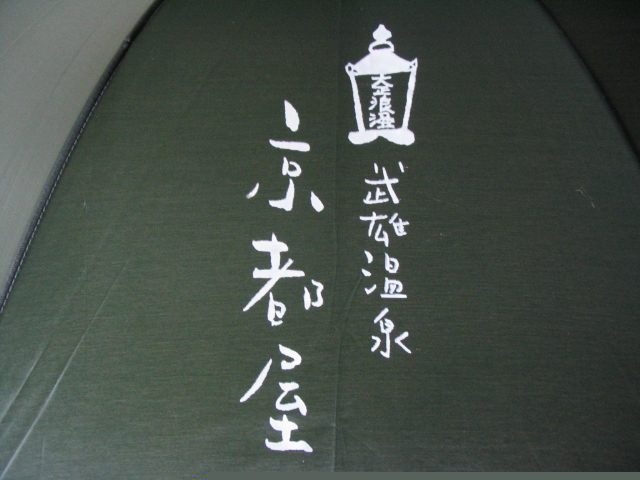 大正浪漫
武雄温泉
京都屋